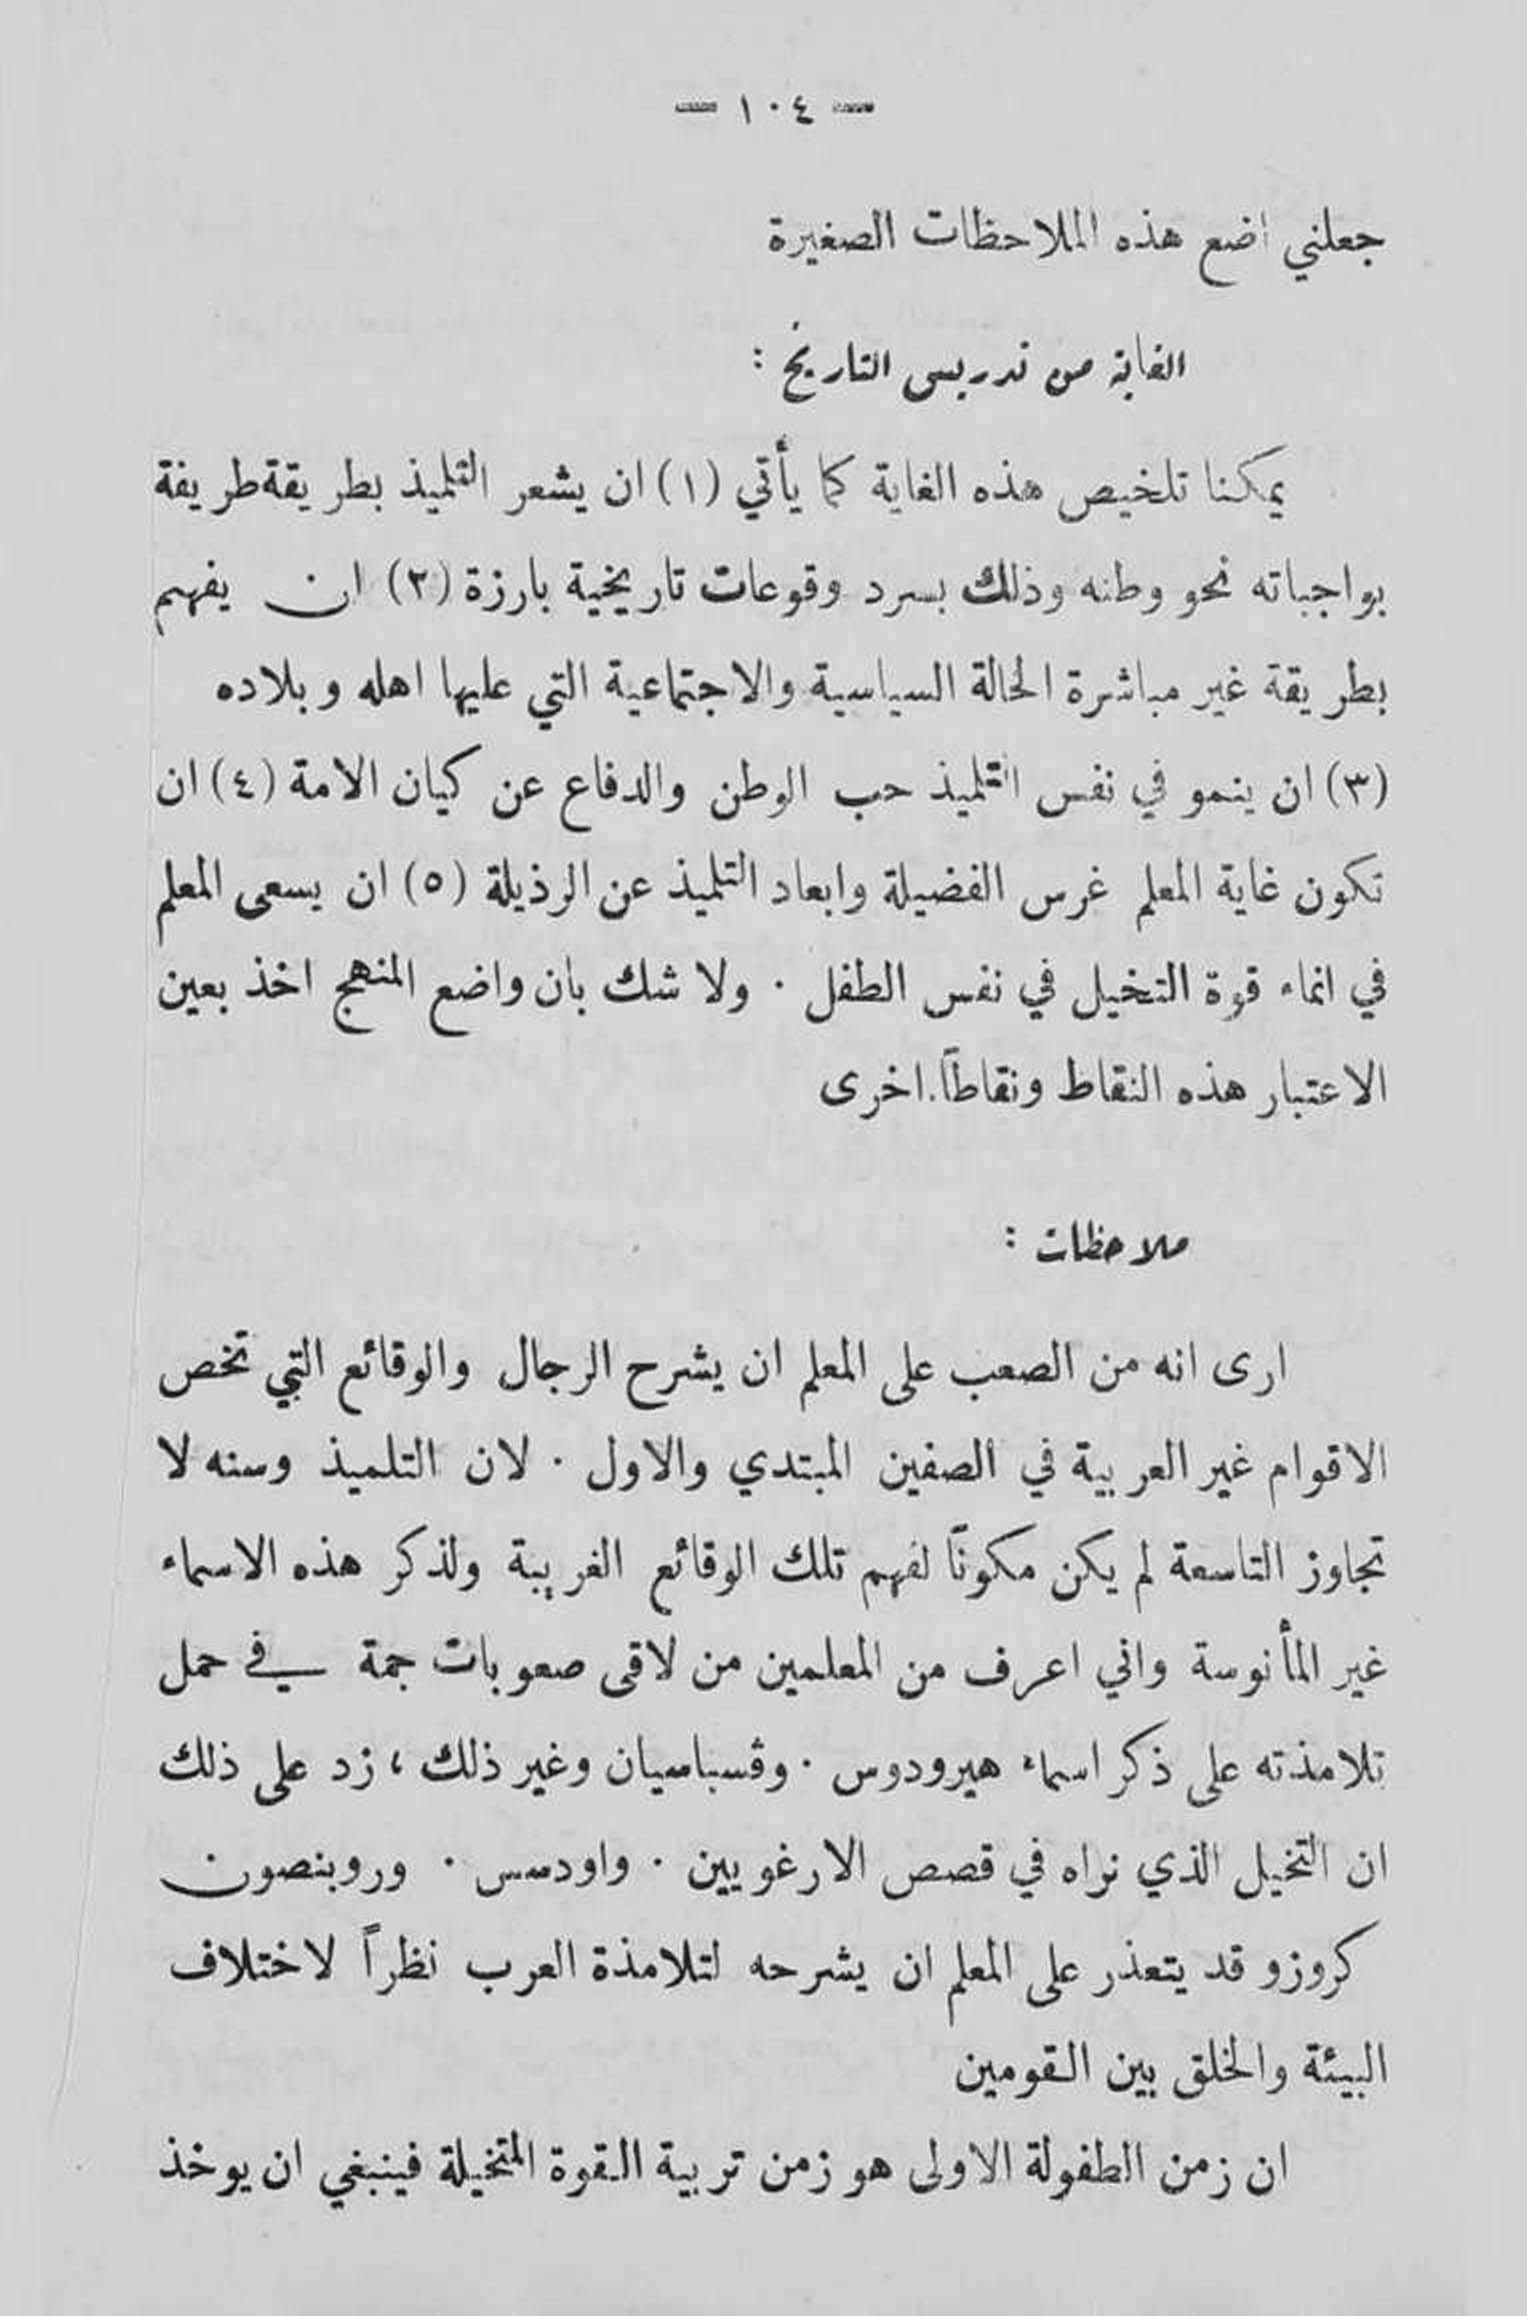 — ١٠٤ —
جعلني اضع هذه الملاحظات الصغيرة
الغاية من تدريس التاريخ :
يمكننا تلخيص هذه الغاية كما يأتي (١) ان يشعر التلميذ بطريقة طريفة
بواجباته نحو وطنه وذلك بسرد وقوعات تاريخية بارزة (٢) ان يفهم
بطريقة غير مباشرة الحالة السياسية والاجتماعية التي عليها اهله وبلاده
(٣) ان ينمو في نفس التلميذ حب الوطن والدفاع عن كيان الامة (٤) ان
تكون غاية المعلم غرس الفضيلة وابعاد التلميذ عن الرذيلة (٥) ان يسعى المعلم
في انماء قوة التخيل في نفس الطفل . ولا شك بان واضع المنهج اخذ بعين
الاعتبار هذه النقاط ونقاطاً اخرى
ملاحظات :
ارى انه من الصعب على المعلم ان يشرح الرجال والوقائع التي تخص
الاقوام غير العربية في الصفين المبتدي والاول . لان التلميذ وسنه لا
تجاوز التاسعة لم يكن مكوناً لفهم تلك الوقائع الغريبة ولذكر هذه الاسماء
غير المأنوسة واني اعرف من المعلمين من لاقى صعوبات جمة في حمل
تلامذته على ذكر اسماء هيرودوس . وفسباسيان وغير ذلك ، زد على ذلك
ان التخيل الذي نراه في قصص الارغويين . واودسس . وروبنصون
كروزو قد يتعذر على المعلم ان يشرحه لتلامذة العرب نظراً لاختلاف
البيئة والخلق بين القومين
ان زمن الطفولة الاولى هو زمن تربية القوة المتخيلة فينبغي ان يوخذ